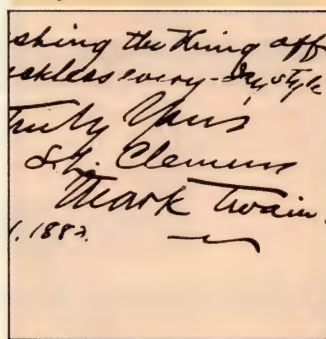 shing the thing off
ckless every-day style
Truly Yours
S.L. Clemens
Mark Twain.
1.1882.